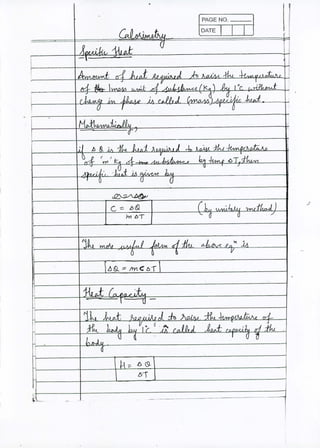 PAGE NO.
DATE
Calorimetry
Specific Heat
Amount of heat required to raise the temperature
of 1mass unit of substance (Kg) by 1°C without
change in phase is called (mass) specific heat.
Mathematically,
if ΔQ is the heat required to raise the temperature
of 'm' Kg of substance by temp ΔT, then
specific heat is given by
C = ΔQ
mΔT
(by unitary method)
The more useful form of the above eqn is
ΔQ = mCΔT
Heat Capacity
The heat required to raise the temperature of
the body by 1°C is called heat capacity of the
body.
H = ΔQ
ΔT